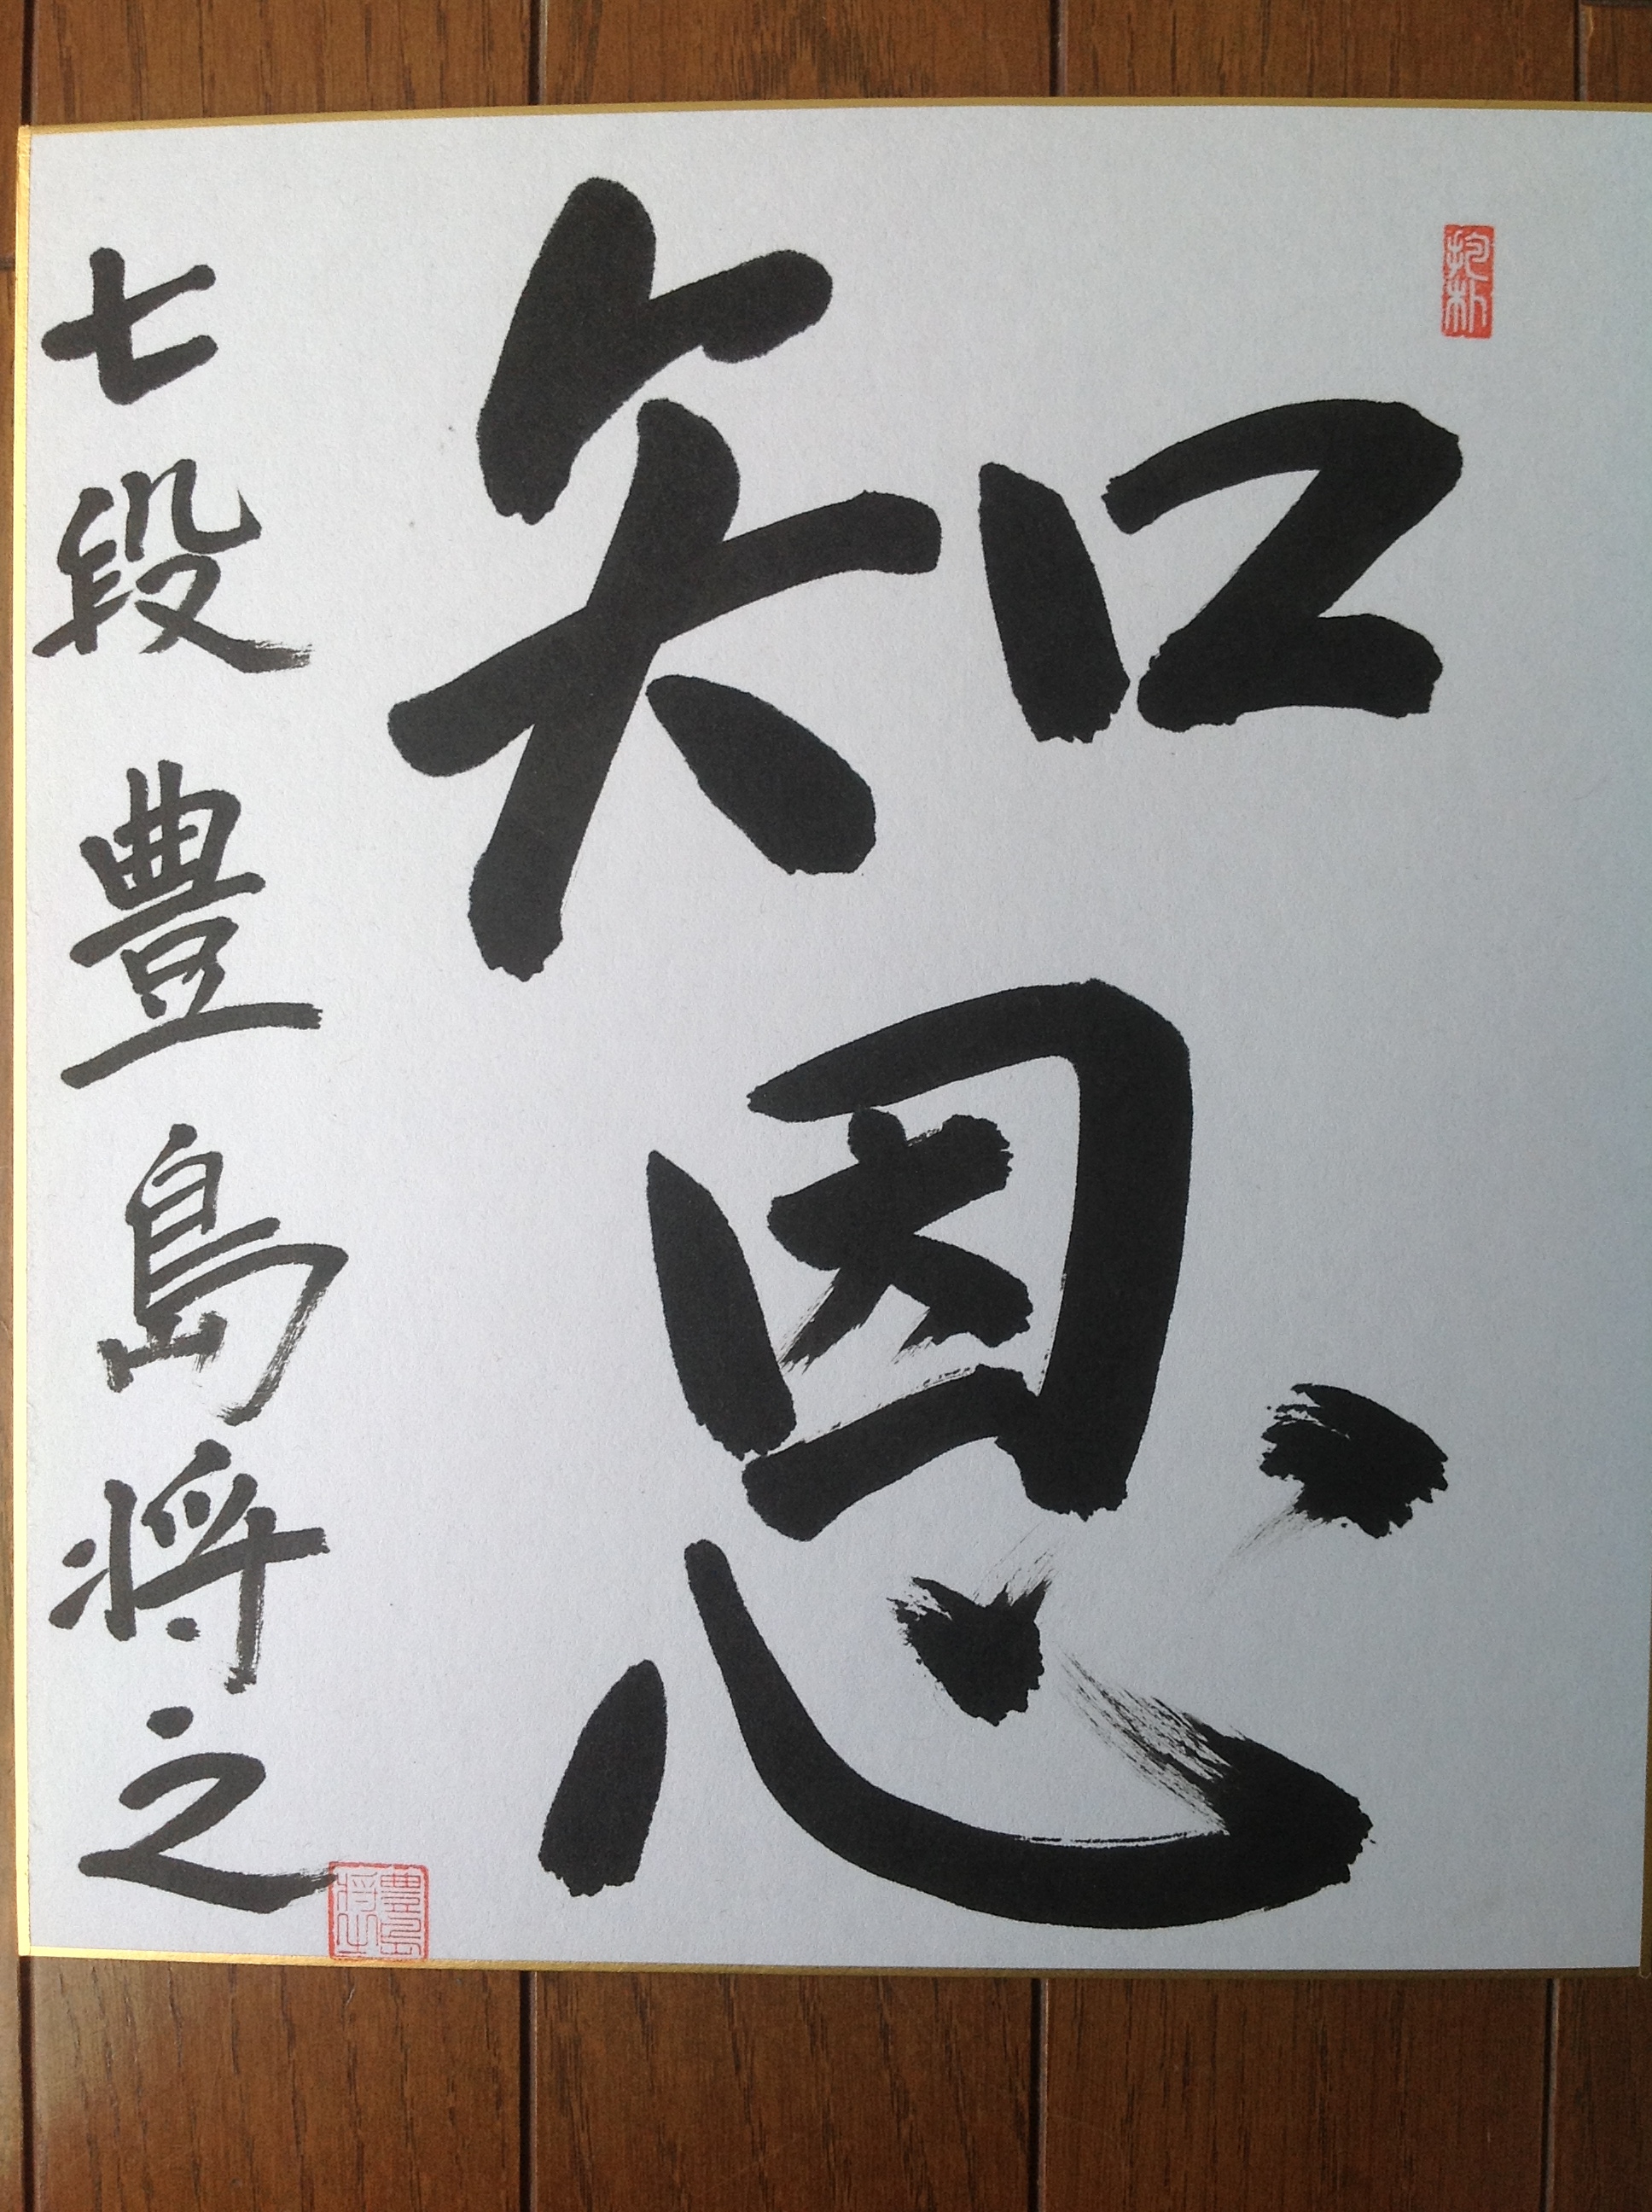 抱朴
知恩
七段 豊島将之
豊島
将之